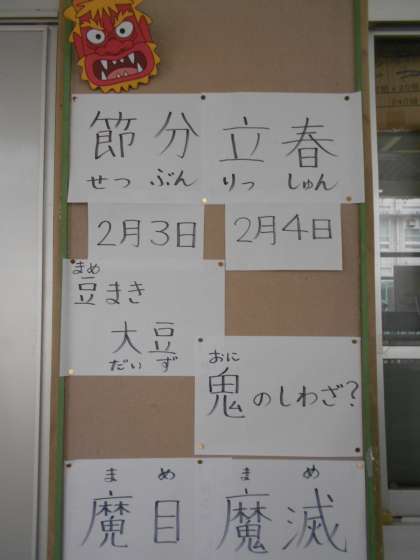 節分 立春
せつ ぶん りっ しゅん
2月3日 2月4日
まめ
豆まき
大豆
だい ず
おに
鬼のしわざ?
ま め ま め
魔目 魔滅